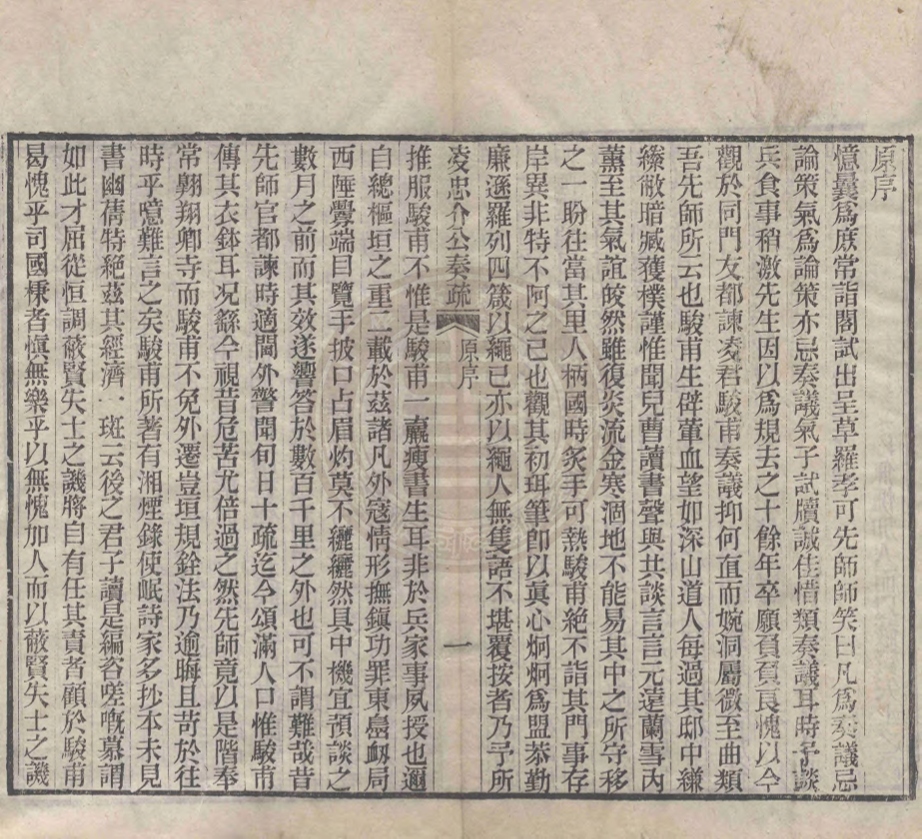 原序
憶曩爲庶常詣閣試出呈草羅孝可先師師笑曰凡爲奏議忌
論策氣爲論策亦忌奏議氣子試牘誠佳惜類奏議耳時予談
兵食事稍激先生因以爲規去之十餘年卒願負負良愧以今
觀於同門友都諫凌君駿甫奏議抑何直而婉洞屬微至曲類
吾先師所云也駿甫生碑葷血望如深山道人每過其邸中縑
縧敝暗臧獲樸謹惟聞兒曹讀書聲與共談言言元遠蘭雪內
薰至其氣誼皎然雖復炎流金寒涸地不能易其中之所守移
之一盼往當其里人柄國時炙手可熱駿甫絶不詣其門事存
岸異非特不阿之已也觀其初珥筆卽以眞心炯炯爲盟恭勤
廉遜羅列四箴以繩已亦以繩人無隻語不堪覆按者乃予所
凌忠介公奏疏 原序 一
推服駿甫不惟是駿甫一羸瘦書生耳非於兵家事夙授也邇
自總樞垣之重二載於茲諸凡外寇情形撫鎭功罪東島衂局
西陲釁端目覽手披口占眉灼莫不纚纚然其中機宜預談之
數月之前而其效遂響答於數百千里之外也可不謂難哉昔
先師官都諫時適閩外警聞旬日十疏迄今頌滿人口惟駿甫
傳其衣鉢耳况繇今視昔危苦尤倍過之然先師竟以是階奉
常翺翔卿寺而駿甫不免外遷豈垣規銓法乃逾晦且苛於往
時乎噫難言之矣駿甫所著有湘煙錄使岷詩家多抄本未見
書幽蒨特絶茲其經濟一斑云後之君子讀是編咨嗟嘅慕謂
如此才屈從恒調蔽賢失士之譏將自有任其責者顧於駿甫
曷愧乎司國棅者愼無樂乎以無愧加人而以蔽賢失士之譏